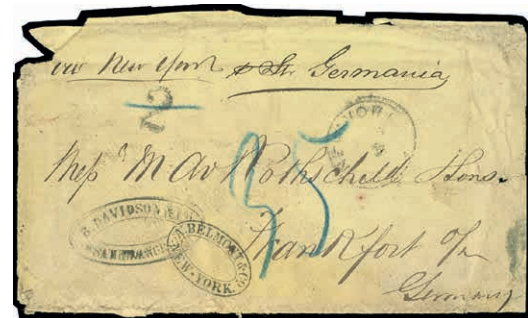 via New York p Str. Germania
2
NEW YORK
45
Messrs M A v Rothschild & Sons.
B. DAVIDSON &
SAN FRANCISCO
A. BELMONT & CO
NEW-YORK.
Frankfort o/m
Germany